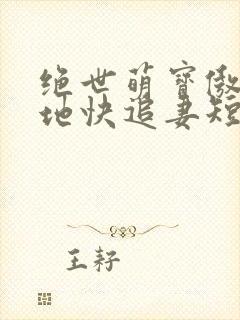 绝世萌宝傲
地快追妻短
王耔